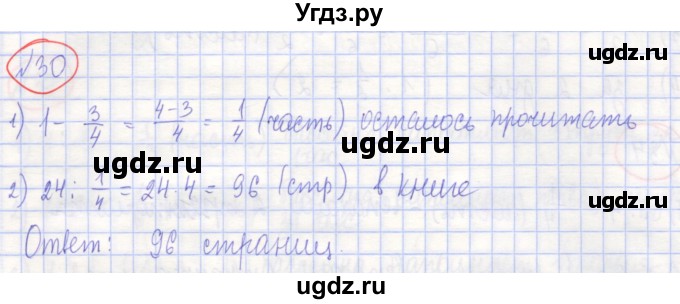 Угдз.ру
№30
1) 1 - 3/4 = (4-3)/4 = 1/4 (часть) осталось прочитать
2) 24 : 1/4 = 24 · 4 = 96 (стр) в книге
Ответ: 96 страниц.
ugdz.ru ugdz.ru
ugdz.ru ugdz.ru
ugdz.ru ugdz.ru
ugdz.ru ugdz.ru